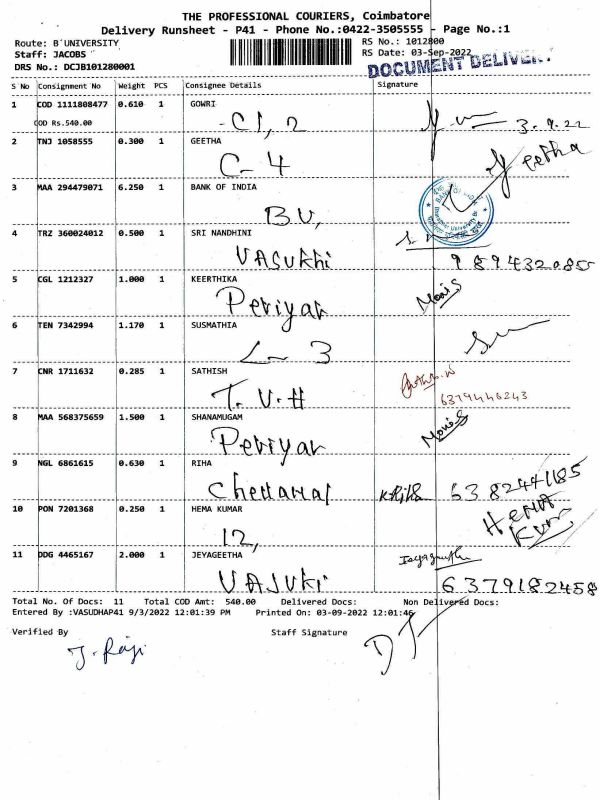 THE PROFESSIONAL COURIERS, Coimbatore
Delivery Runsheet - P41 - Phone No.:0422-3505555 - Page No.:1
Route: B'UNIVERSITY RS No.: 1012800
Staff: JACOBS RS Date: 03-Sep-2022
DRS No.: DCJB101280001 DOCUMENT DELIVERY
S No Consignment No Weight PCS Consignee Details Signature
1 COD 1111808477 0.610 1 GOWRI
COD Rs.540.00 C1, 2 3.9.22
2 TNJ 1058555 0.300 1 GEETHA Geetha
C-4
3 MAA 294479071 6.250 1 BANK OF INDIA
B.U,
4 TRZ 360024012 0.500 1 SRI NANDHINI
VASUKhi 9894320855
5 CGL 1212327 1.000 1 KEERTHIKA MoniS
Periyar
6 TEN 7342994 1.170 1 SUSMATHIA
L- 3
7 CNR 1711632 0.285 1 SATHISH
T.V.H 6379446243
8 MAA 568375659 1.500 1 SHANAMUGAM MoniS
Periyar
9 NGL 6861615 0.630 1 RIHA
K.Riha 6382441185
10 PON 7201368 0.250 1 HEMA KUMAR HEMA
12, Kum
11 DDG 4465167 2.000 1 JEYAGEETHA Jeyageetha
VASUKi 6379182458
Total No. Of Docs: 11 Total COD Amt: 540.00 Delivered Docs: Non Delivered Docs:
Entered By :VASUDHAP41 9/3/2022 12:01:39 PM Printed On: 03-09-2022 12:01:46
Verified By Staff Signature
J. Raji DJ